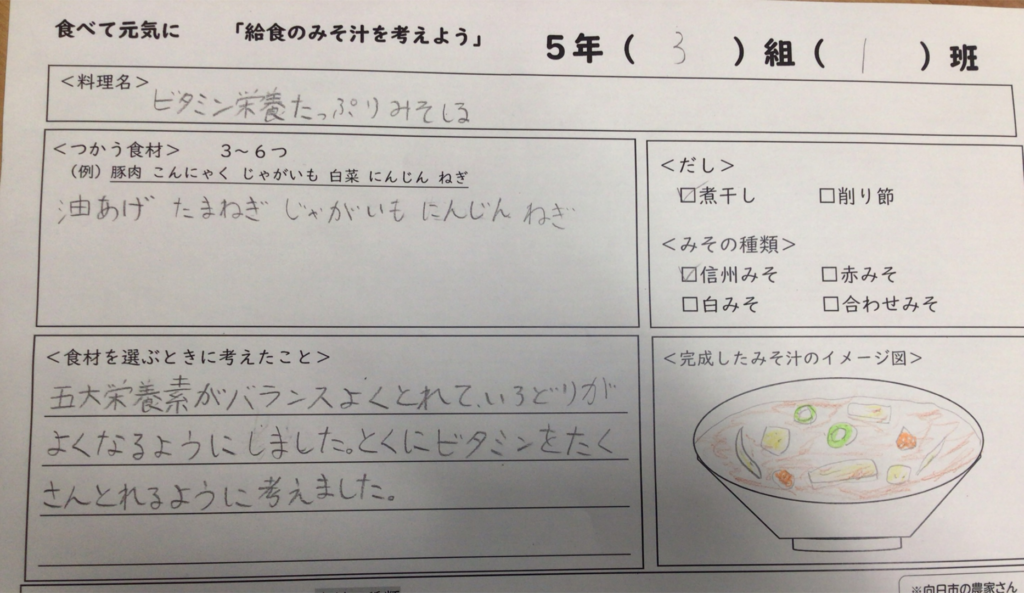 食べて元気に 「給食のみそ汁を考えよう」 5年( 3 )組( 1 )班
<料理名>
ビタミン栄養たっぷりみそしる
<つかう食材> 3~6つ
(例) 豚肉 こんにゃく じゃがいも 白菜 にんじん ねぎ
油あげ たまねぎ じゃがいも にんじん ねぎ
<だし>
☑煮干し □削り節
<みその種類>
☑信州みそ □赤みそ
□白みそ □合わせみそ
<食材を選ぶときに考えたこと>
五大栄養素がバランスよくとれて、いろどりが
よくなるようにしました。とくにビタミンをたく
さんとれるように考えました。
<完成したみそ汁のイメージ図>
※向日市の農家さん